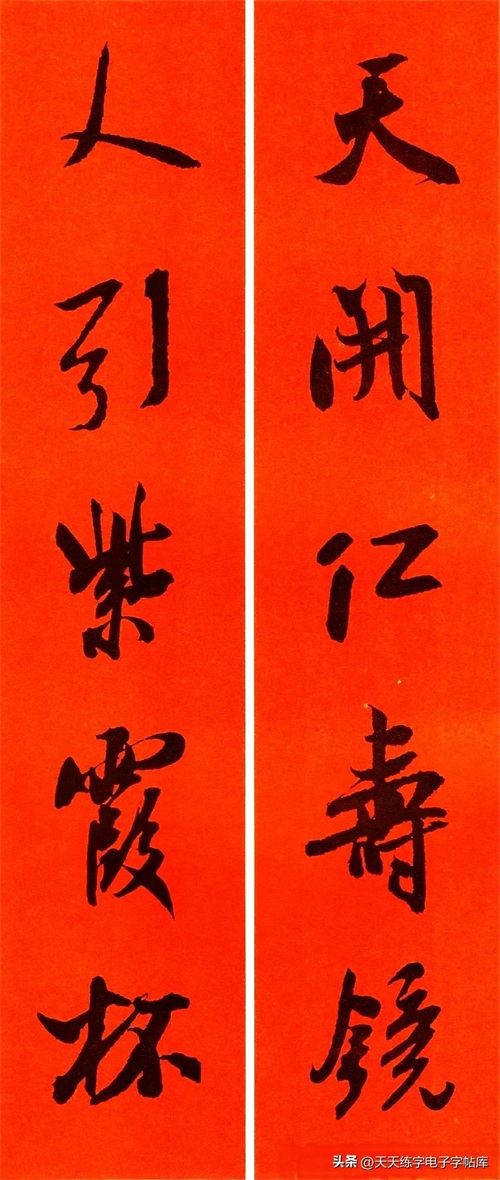 天開仁壽鏡
人引紫霞杯
头条 @天天练字电子字帖库